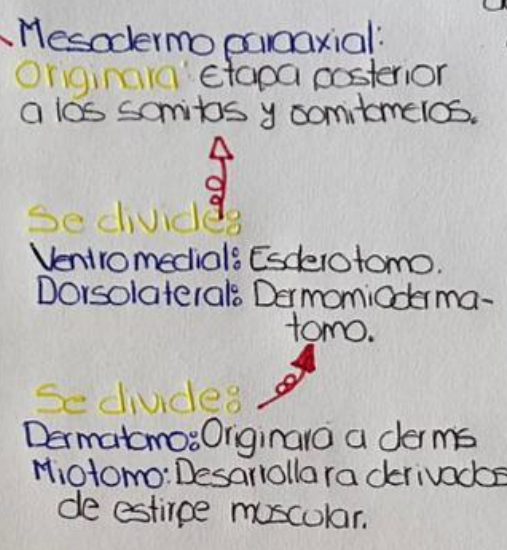 Mesodermo paraaxial:
Originara: Etapa posterior
a los somitas y somitomeros.
Se divide:
Ventromedial: Esclerotomo.
Dorsolateral: Dermomioderma-
tomo.
Se divide:
Dermatomo: Originara a derms
Miotomo: Desarrollara derivados
de estirpe muscular.